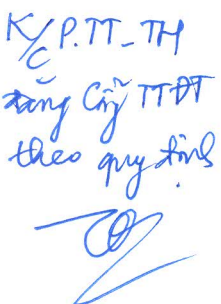 K/c P.TT-TH
đăng Cổng TTĐT
theo quy định